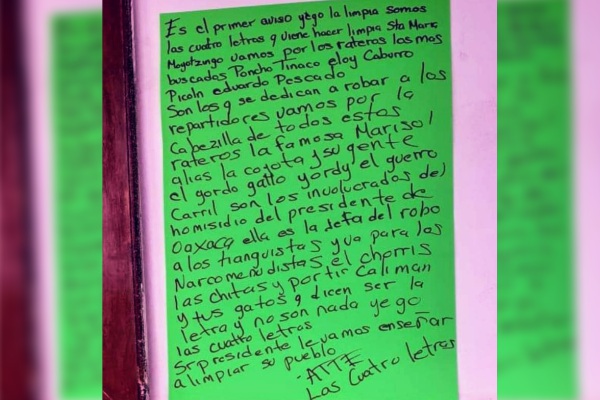 Es el primer aviso yego la limpia somos
las cuatro letras q viene hacer limpia Sta Maria
Moyotzingo vamos por los rateros los mas
buscados Poncho Tinaco eloy Caburro
Picoln eduardo Pescado
Son los q se dedican a robar a los
repartidores vamos por la
Cabezilla de todos estos
rateros la famosa Marisol
alias la coyota y su gente
el gordo gatto yordy el guerro
Carril son los involucrados del
homisidio del presidente de
Oaxaca ella es la Jefa del robo
a los tranguistas y va para las
Narcomenudistas el chorris
las chitas y por tir Caliman
y tus gatos q dicen ser la
letra y no son nada yego
las cuatro letras
Sr presidente le vamos enseñar
a limpiar su pueblo
-ATTE
Las Cuatro letras